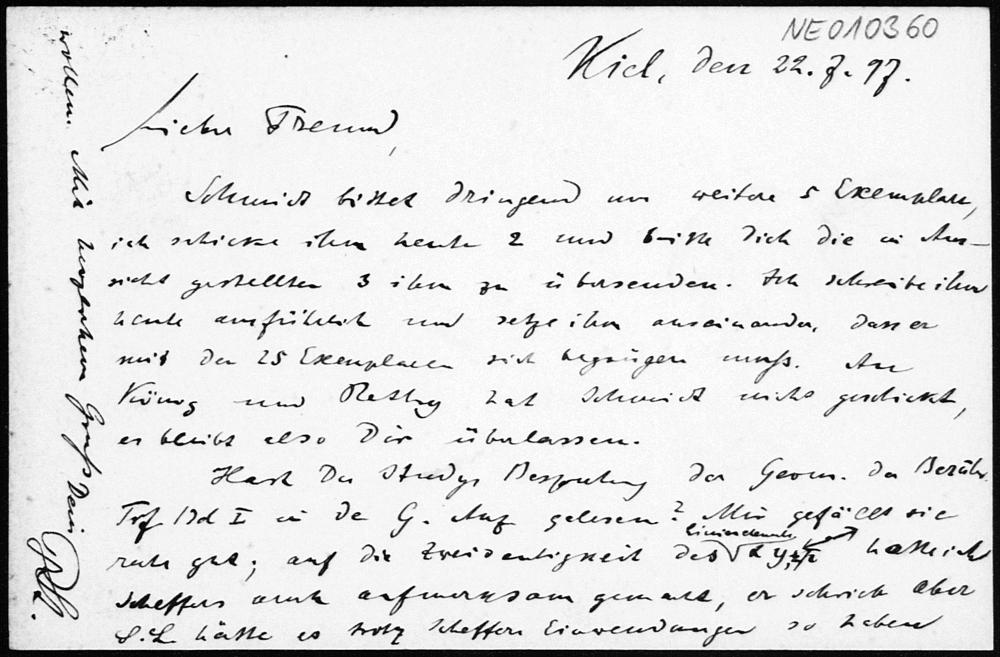 NE010360
Kiel, den 22.7.97.
Lieber Freund,
Schmidt bittet dringend um weitere 5 Exemplare,
ich schicke ihm heute 2 und bitte Dich die in Aus-
sicht gestellten 3 ihm zu übersenden. Ich schreibe ihm
heute ausführlich und setze ihm auseinander, dass er
mit den 25 Exemplaren sich begnügen muß. An
König und Réthy hat Schmidt nichts geschickt,
es bleibt also Dir überlassen.
Hast Du Studys Besprechung der Geom. der Berühr.
Trf. Bd I in der G. Anz gelesen? Mir gefällt sie
recht gut; auf die Zweideutigkeit des hatte ich
Scheffers auch aufmerksam gemacht, er schrieb aber
S. L. hätte es trotz Scheffers Einwendungen so haben
wollen. Mit herzlichem Gruß Dein